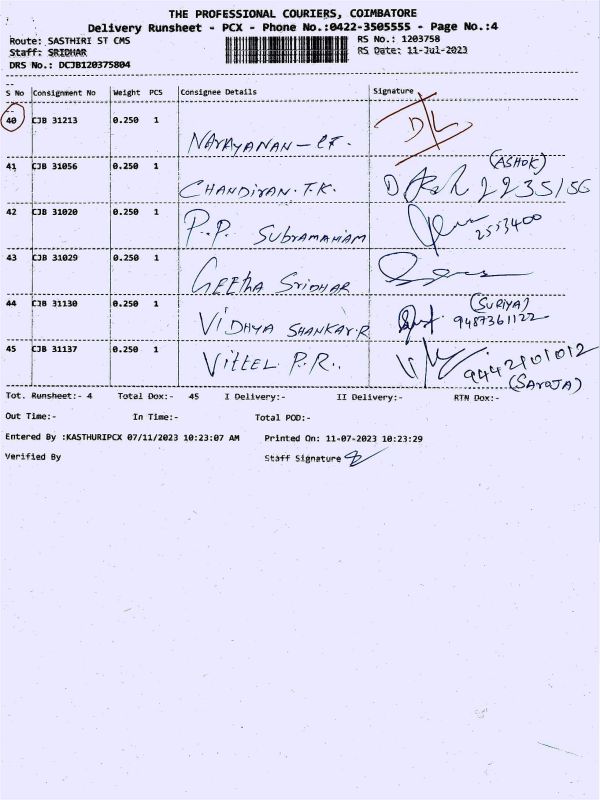 THE PROFESSIONAL COURIERS, COIMBATORE
Delivery Runsheet - PCX - Phone No.:0422-3505555 - Page No.:4
Route: SASTHIRI ST CMS RS No.: 1203758
Staff: SRIDHAR RS Date: 11-Jul-2023
DRS No.: DCJB120375804
S No Consignment No Weight PCS Consignee Details Signature
40 CJB 31213 0.250 1 DL
NARAYANAN
(ASHOK)
41 CJB 31056 0.250 1
CHANDIRAN. T.K. 2235156
42 CJB 31020 0.250 1
P.P. SUBRAMANIAM 2553400
43 CJB 31029 0.250 1
GEETHA SRIDHAR
44 CJB 31130 0.250 1 (SURIYA)
VIDHYA SHANKAR.R 9487361122
45 CJB 31137 0.250 1
VITTEL P.R. 9442101012
(SAROJA)
Tot. Runsheet:- 4 Total Dox:- 45 I Delivery:- II Delivery:- RTN Dox:-
Out Time:- In Time:- Total POD:-
Entered By :KASTHURIPCX 07/11/2023 10:23:07 AM Printed On: 11-07-2023 10:23:29
Verified By Staff Signature